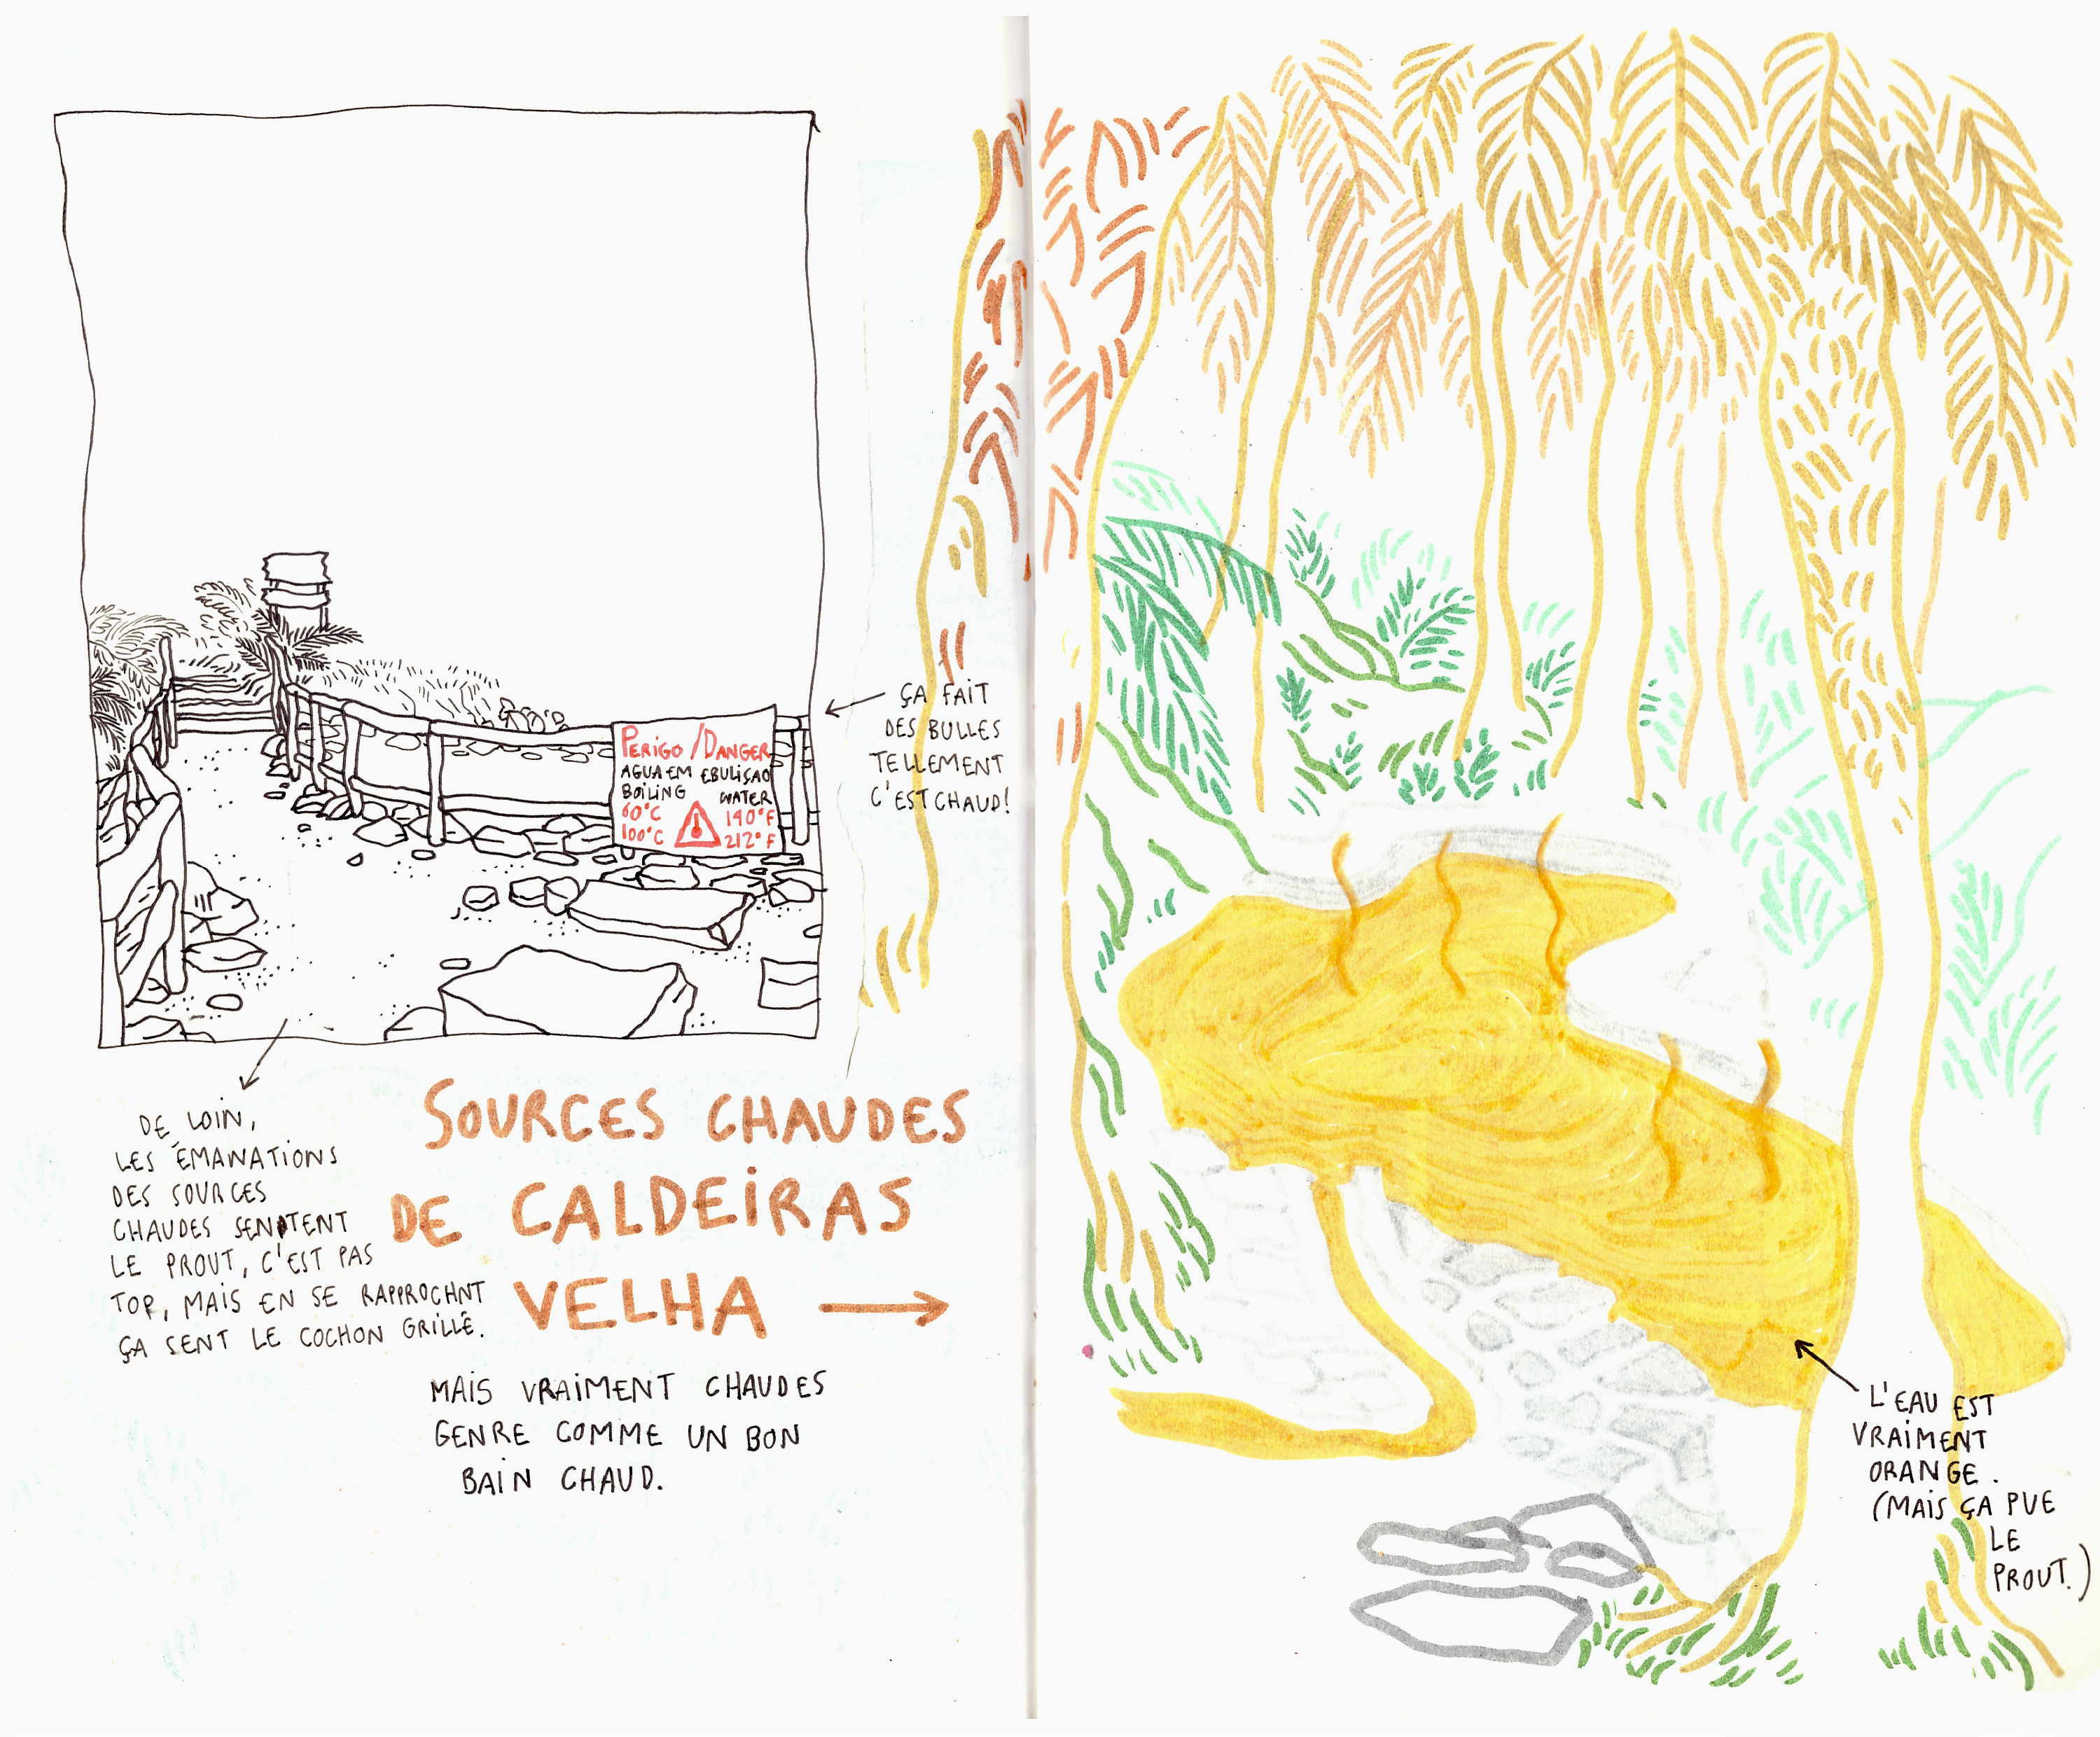 PERIGO / DANGER
AGUA EM EBULIÇAO
BOILING WATER
60°C 140°F
100°C 212°F
ÇA FAIT
DES BULLES
TELLEMENT
C'EST CHAUD!
DE LOIN,
LES ÉMANATIONS
DES SOURCES
CHAUDES SENTENT
LE PROUT, C'EST PAS
TOP, MAIS EN SE RAPPROCHNT
ÇA SENT LE COCHON GRILLÉ.
SOURCES CHAUDES
DE CALDEIRAS
VELHA
MAIS VRAIMENT CHAUDES
GENRE COMME UN BON
BAIN CHAUD.
L'EAU EST
VRAIMENT
ORANGE.
(MAIS ÇA PUE
LE
PROUT.)